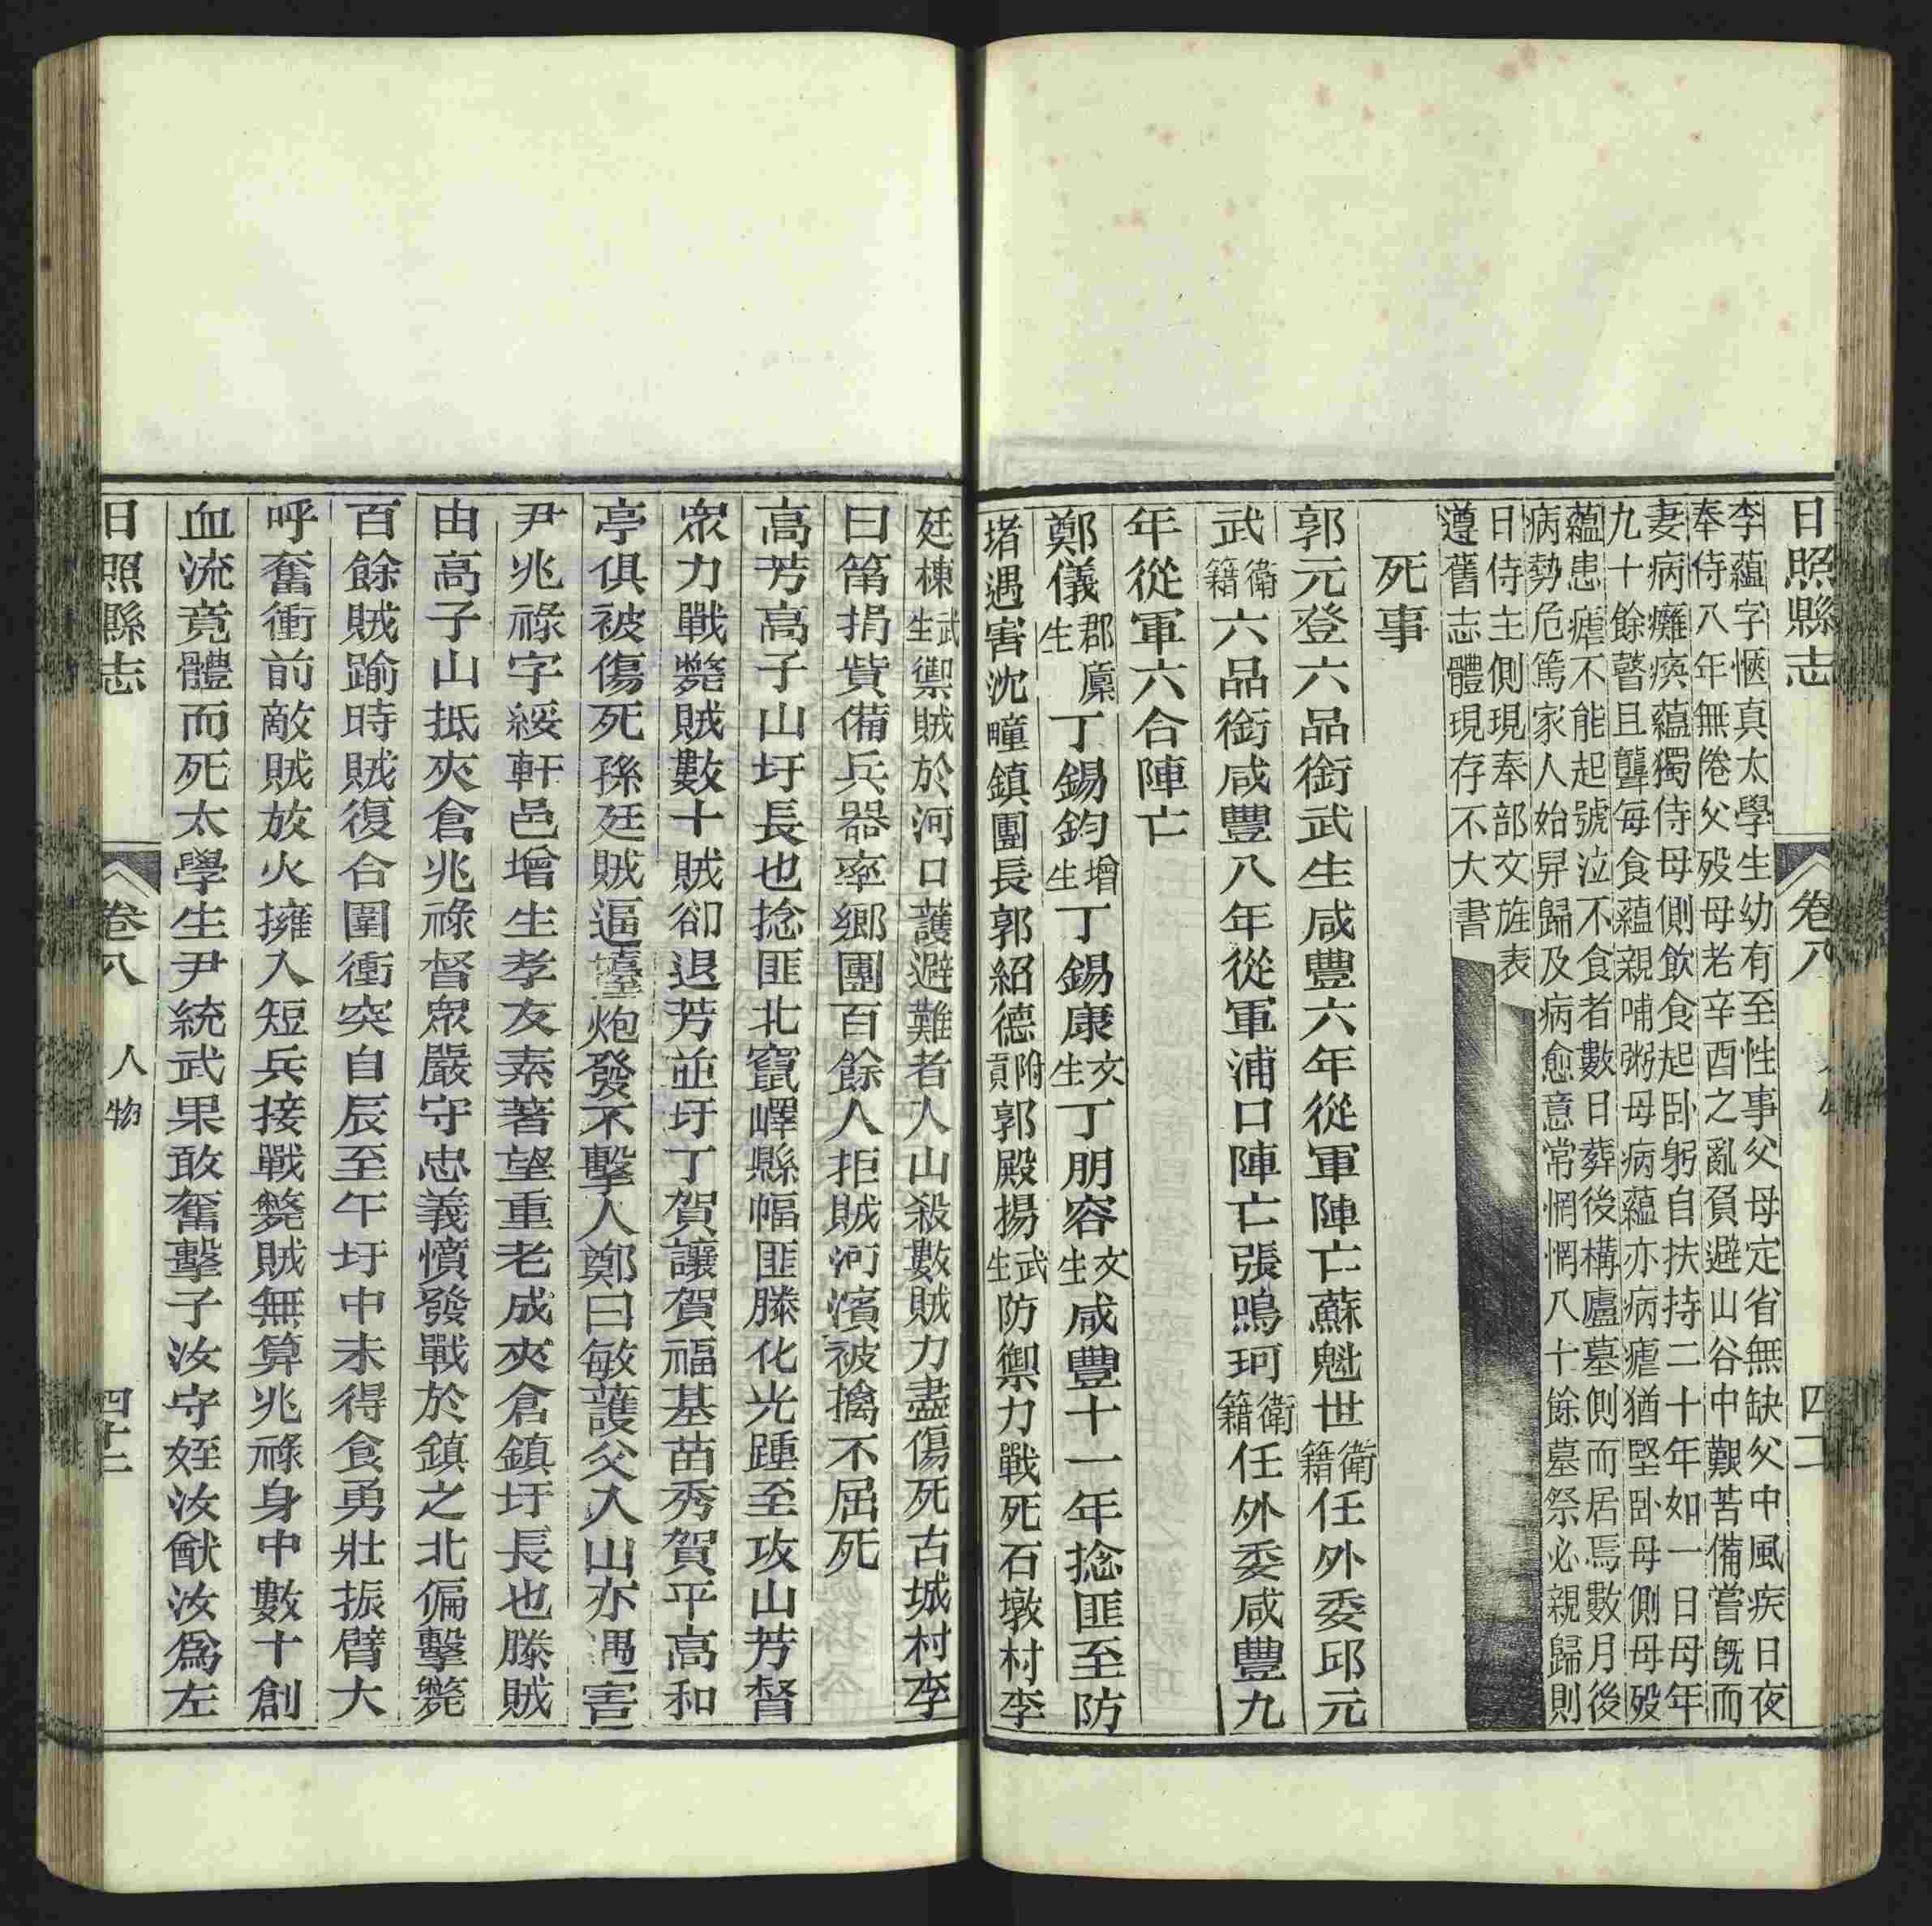 日照縣志 卷八
李蘊字愜真太學生幼有至性事父母定省無缺父中風疾日夜
奉侍八年無倦父歿母老辛酉之亂負避山谷中艱苦備嘗旣而
妻病癱瘓蘊獨侍母側飲食起卧躬自扶持二十年如一日母年
九十餘瞽且聾每食蘊親哺粥母病蘊亦病瘧猶堅卧母側母歿
蘊患瘧不能起號泣不食者數日葬後構廬墓側而居焉數月後
病勢危篤家人始舁歸及病愈意常惘惘八十餘墓祭必親歸則
日侍主側現奉部文旌表
遵舊志體現存不大書
死事
郭元登六品銜武生咸豐六年從軍陣亡蘇魁世衛籍任外委邱元
武衛籍六品銜咸豐八年從軍浦口陣亡張鳴珂衛籍任外委咸豐九
年從軍六合陣亡
鄭儀郡廩生丁錫鈞增生丁錫康文生丁朋容文生咸豐十一年捻匪至防
堵遇害沈疃鎮團長郭紹德附貢郭殿揚武生防禦力戰死石墩村李
廷棟武生禦賊於河口護避難者入山殺數賊力盡傷死古城村李
曰筩捐貲備兵器率鄉團百餘人拒賊河濱被擒不屈死
高芳高子山圩長也捻匪北竄嶧縣幅匪滕化光踵至攻山芳督
眾力戰斃賊數十賊卻退芳並圩丁賀讓賀福基苗秀賀平高和
亭俱被傷死孫廷賊逼擡炮發不擊人鄭曰敏護父入山亦遇害
尹兆祿字綏軒邑增生孝友素著望重老成夾倉鎮圩長也滕賊
由高子山抵夾倉兆祿督眾嚴守忠義憤發戰於鎮之北偏擊斃
百餘賊踰時賊復合圍衝突自辰至午圩中未得食勇壯振臂大
呼奮衝前敵賊放火擁入短兵接戰斃賊無算兆祿身中數十創
血流竟體而死太學生尹統武果敢奮擊子汝守姪汝猷汝爲左
日照縣志 卷八 人物 四十二